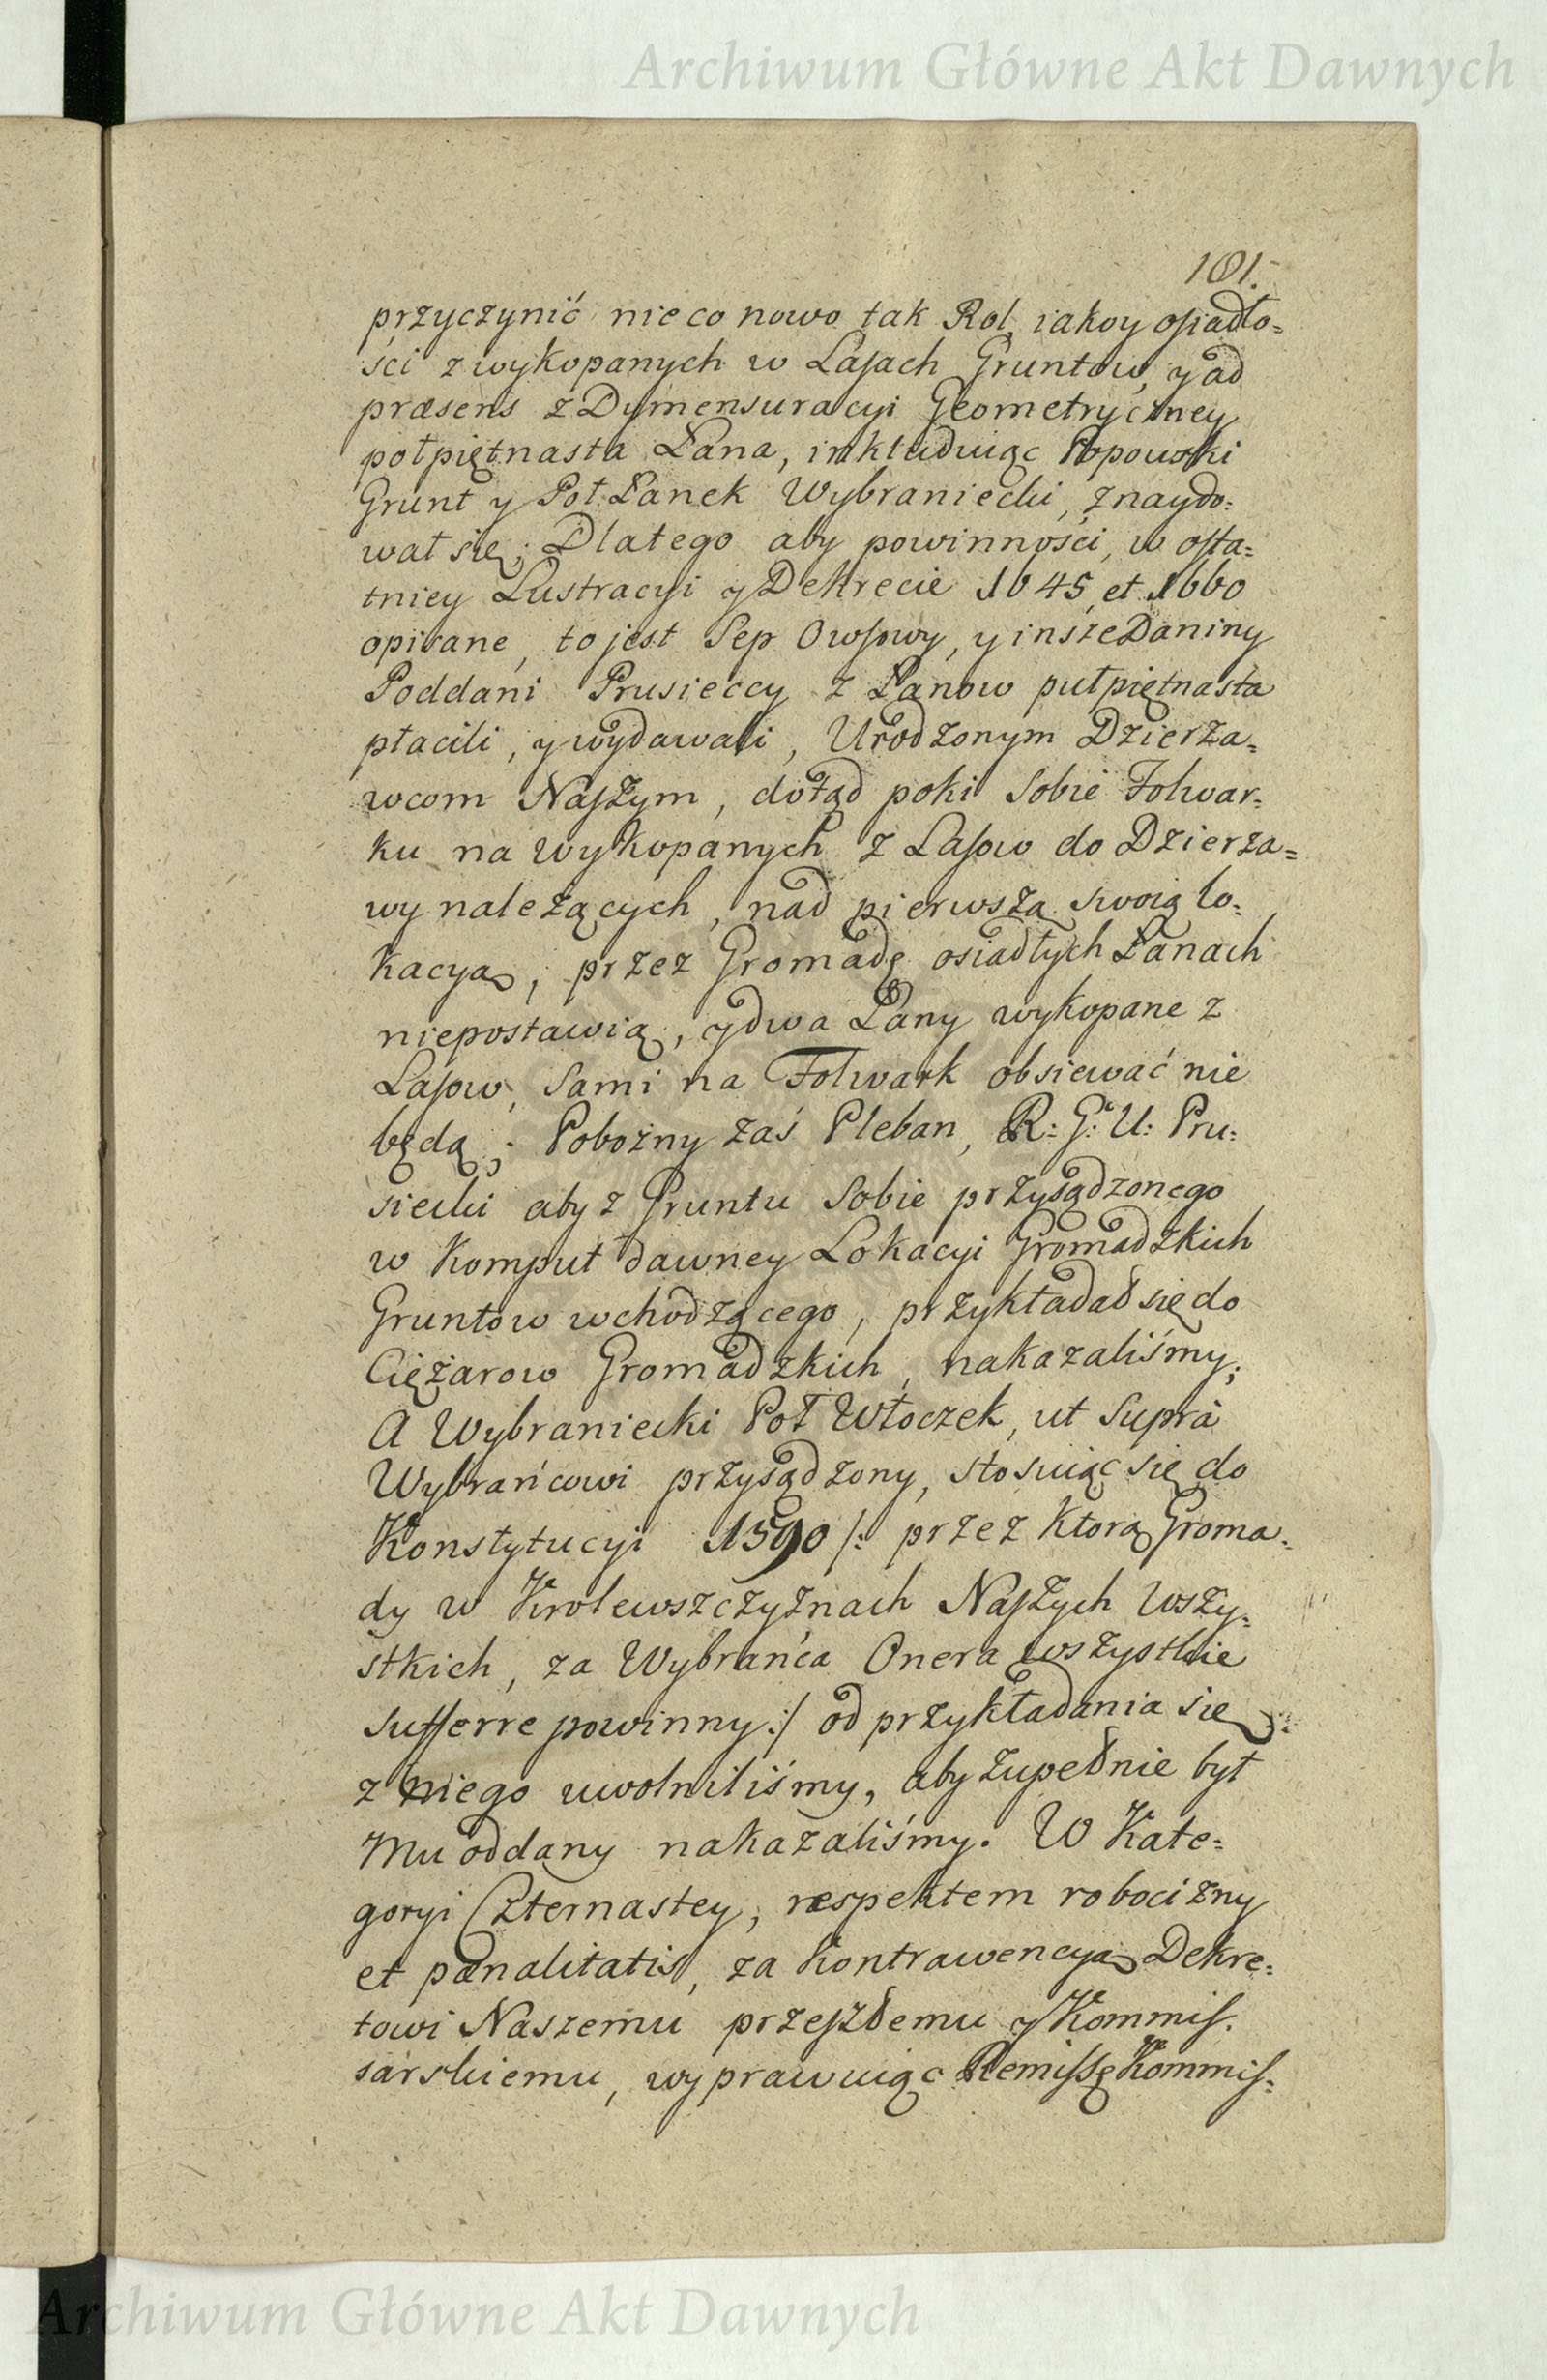 Archiwum Główne Akt Dawnych
101.
przyczynić nieco nowo tak Rol, iakoy osiadło=
ści z wykopanych w Lasach Gruntow, y ad
præsens z Dymensuracyi Geometryczney
połpiętnasta Łana, inkluduiąc Popowski
Grunt y Poł Łanek Wybraniecki, znaydo=
wał się; Dlatego aby powinności, w osta=
tniey Lustracyi y Dekrecie 1645, et 1660
opisane, to jest Sep Owsowy, y insze Daniny
Poddani Prusieccy z Łanow pułpiętnasta
płacili, y wydawali, Urodzonym Dzierża=
wcom Naszym, dotąd poki sobie Folwar=
ku na wykopanych z Lasow do Dzierża=
wy należących, nad pierwszą swoią lo=
kacyą, przez Gromadę osiadłych Łanach
niepostawią, y dwa Łany wykopane z
Lasow, sami na Folwark obsiewać nie
będą; Pobożny zaś Pleban, R: G: U: Pru=
siecki aby z Gruntu sobie przysądzonego
w Komput dawney Lokacyi Gromadzkich
Gruntow wchodzącego, przykładał się do
Ciężarow Gromadzkich, nakazaliśmy;
A Wybraniecki Poł Włoczek, ut supra
Wybrańcowi przysądzony, stosuiąc się do
Konstytucyi 1590 /: przez ktorą Groma=
dy w Krolewszczyznach Naszych wszy=
stkich, za Wybrańca Onera wszystkie
sufferre powinny :/ od przykładania się
z niego uwolniliśmy, aby zupełnie był
Mu oddany nakazaliśmy. W Kate=
goryi Czternastey, respektem robocizny
et pænalitatis, za kontrawencyą Dekre=
towi Naszemu przeszłemu y Kommis=
sarskiemu, wyprawuiąc Remissę Kommis=
Archiwum Główne Akt Dawnych